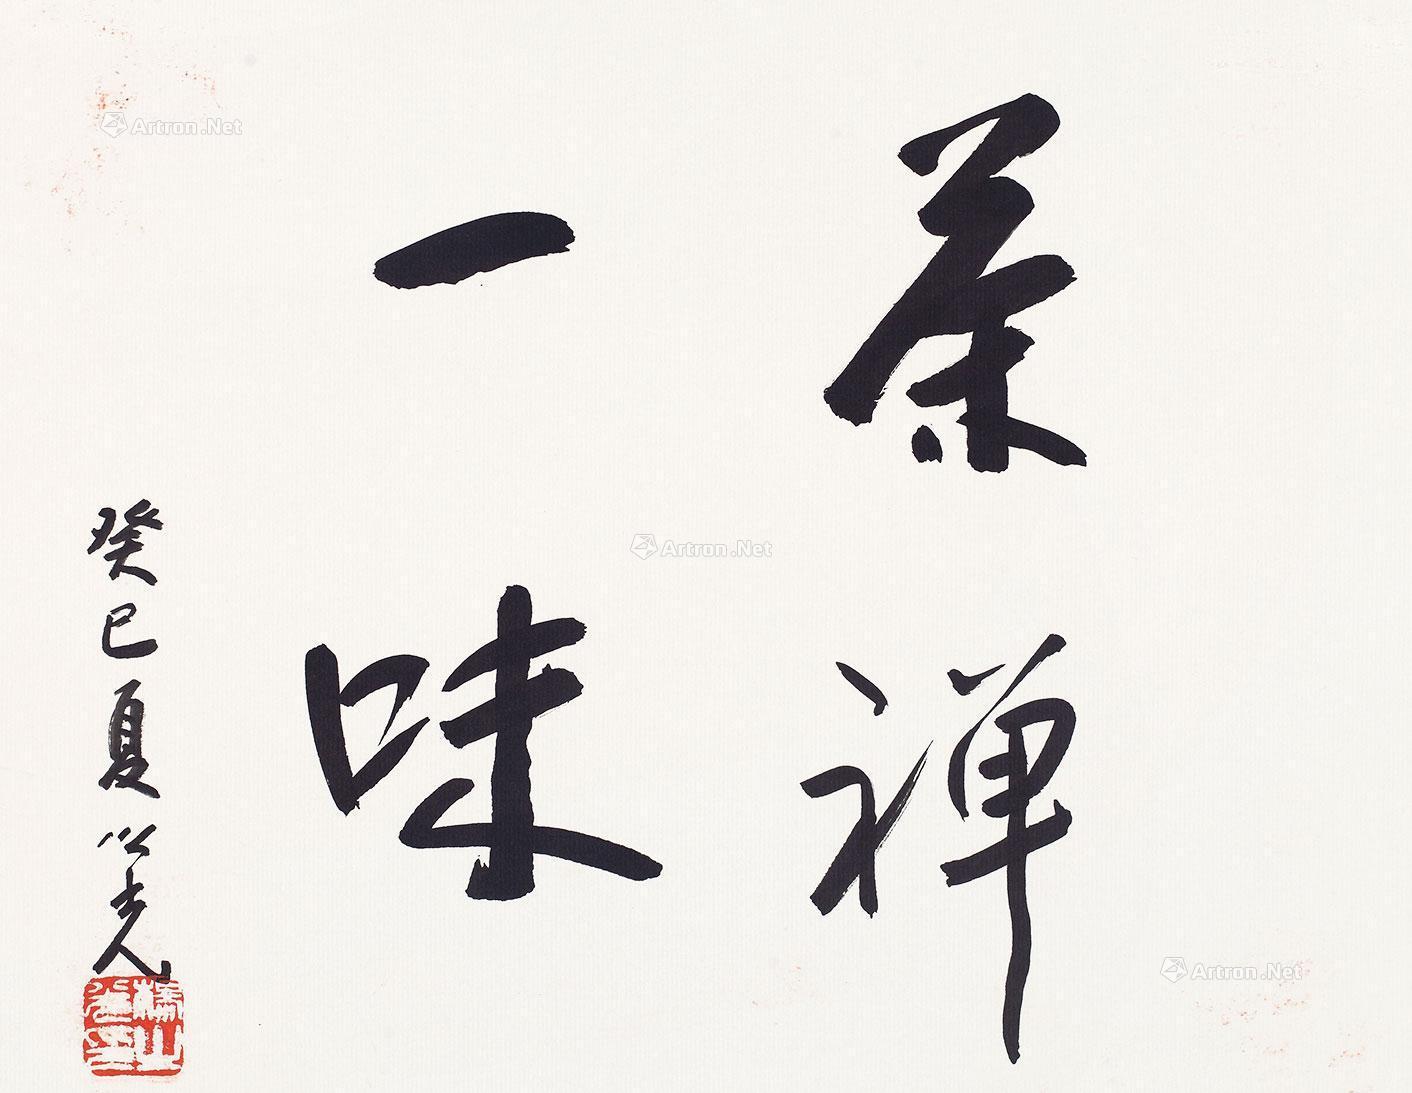 茶禅
一味
癸巳夏 之光
楊之光印
Artron.Net
Artron.Net
Artron.Net